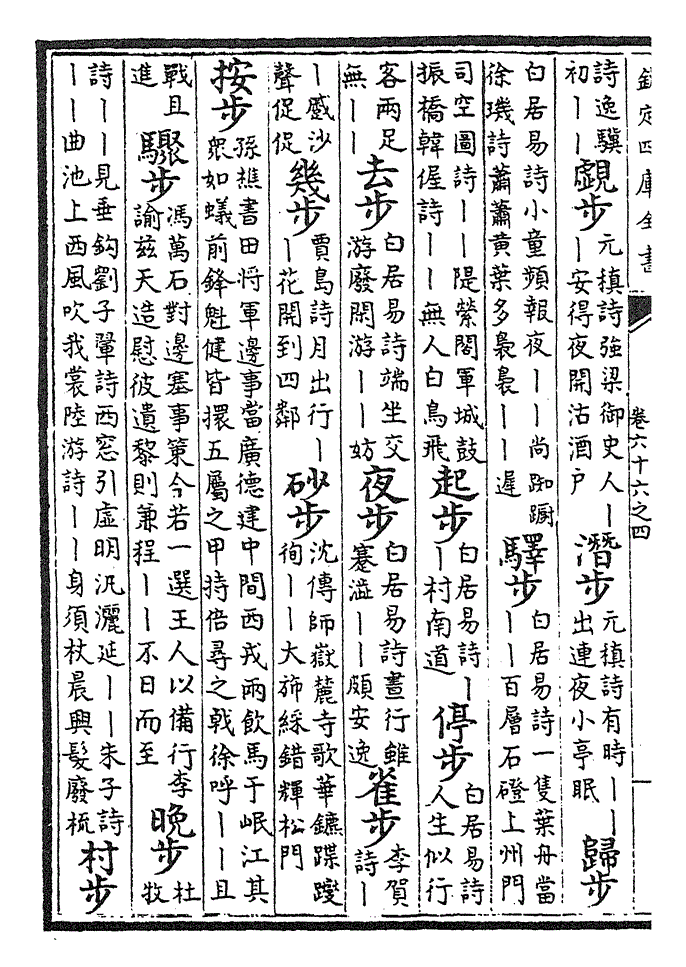 欽定四庫全書
卷六十六之四
詩逸驥初｜｜覷步元稹詩強梁御史人｜｜安得夜開沽酒戶潛步元稹詩有時｜｜出連夜小亭眠歸步
白居易詩小童頻報夜｜｜尚踟蹰徐璣詩蕭蕭黄葉多裊裊｜｜遲驛步白居易詩一隻葉舟當｜｜百層石磴上州門
司空圖詩｜｜隄縈閣軍城鼓振橋韓偓詩｜｜無人白鳥飛起步白居易詩｜｜村南道停步白居易詩人生似行
客兩足無｜｜去步白居易詩端坐交游廢閑游｜｜妨夜步白居易詩晝行雖蹇澁｜｜頗安逸雀步李賀詩｜
｜慼沙聲促促幾步賈島詩月出行｜｜花開到四鄰砂步沈傳師嶽麓寺歌華鑣蹀躞徇｜｜大斾綵錯輝松門
按步孫樵書田將軍邊事當廣德建中間西戎兩飲馬于岷江其衆如蟻前鋒魁健皆擐五屬之甲持倍尋之戟徐呼｜｜且
戰且進驟步馮萬石對邊塞事策今若一選王人以備行李諭兹天造慰彼遺黎則兼程｜｜不日而至晚步杜牧
詩｜｜見垂鈎劉子翬詩西窓引虛明汎灑延｜｜朱子詩｜｜曲池上西風吹我裳陸游詩｜｜身須杖晨興髮廢梳村步